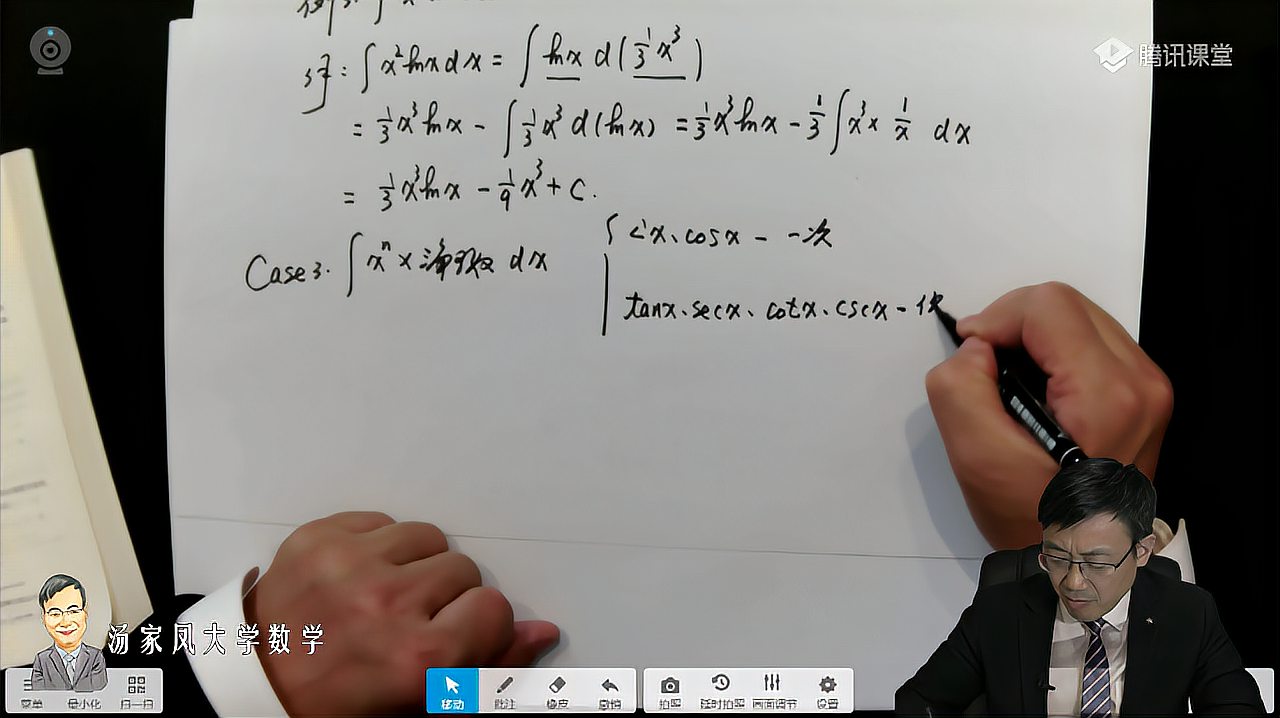 腾讯课堂
解：∫x²lnxdx = ∫lnx d(1/3 x³)
= 1/3 x³lnx - ∫1/3 x³ d(lnx) = 1/3 x³lnx - 1/3 ∫x³ × 1/x dx
= 1/3 x³lnx - 1/9 x³ + C.
Case 3. ∫xⁿ × 三角函数 dx
x、cosx - 一次
tanx、secx、cotx、cscx -
汤家凤大学数学
菜单 最小化 扫一扫
移动 批注 橡皮 撤销
拍照 延时拍照 画面调节 设置